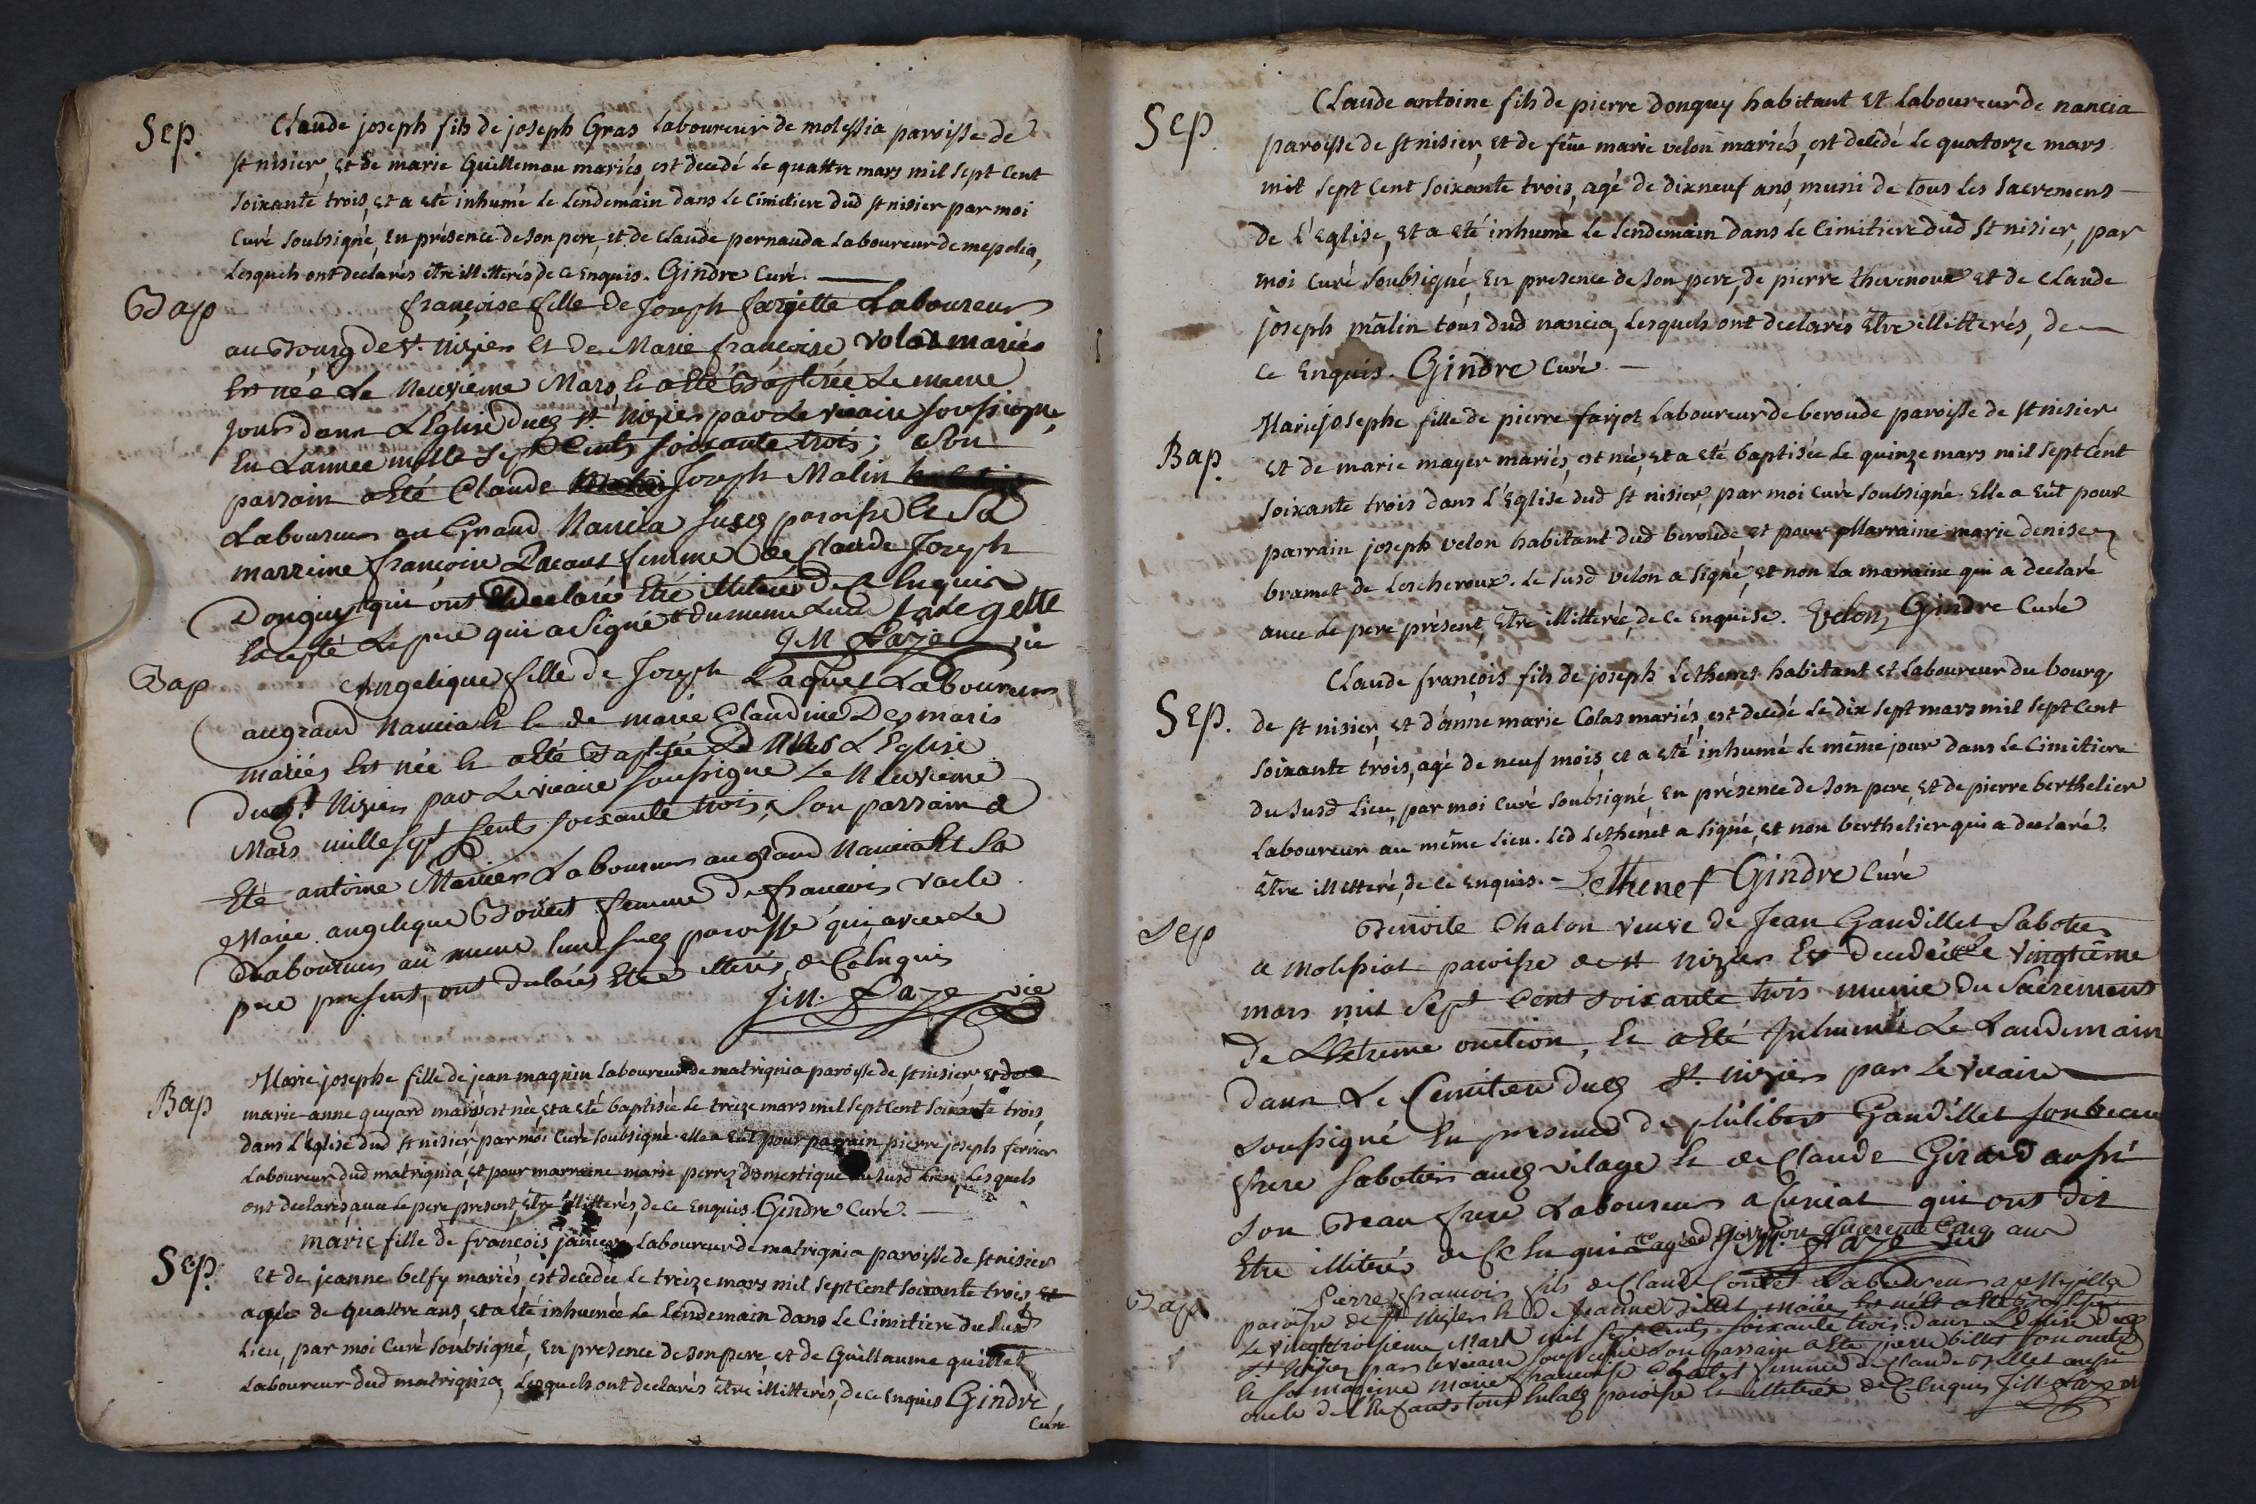 Sep. Claude joseph fils de joseph Gras Laboureur de molessia paroisse de
st nisier, et de marie Guillemau mariés, est decedé le quattre mars mil sept Cent
soixante trois, et a eté inhumé le Lendemain dans le Cimetiere dud st nisier par moi
Curé soubsigné, En présence de son pere, et de claude pernauda Laboureur de mepelia,
Lesquels ont declarés être illitterés, de ce Enquis. Gindre Curé.
Bap françoise fille de Joseph fargette Laboureur
au Bourg de st. nizier et de Marie françoise volat mariés
Est née Le Neuvieme Mars, et a Eté Baptisée Le meme
jour dans L'Eglise dud st. Nizier par Le vicaire soussigné,
En L'année mille Sept Cents soixante trois; Son
parrain a Eté Claude Joseph Malin
Laboureur au Grand Nancia susd paroisse Et Sa
marreine françoise Lacaut femme de Claude Joseph
Donguy qui ont declarés Etre illiterés de ce Enquis
Excepté Le pere qui a signé faregette
J M Laze vic
Bap Angelique fille de Joseph Paquet Laboureur
au grand Nancia et de marie Claudine Desmaris
mariés Est née et a Eté Baptisée L'Eglise
dud st. Nizier par Le vicaire soussigné Le Neuvieme
Mars mille sept Cents soixante trois, Son parrain a
Eté antoine Mercier Laboureur au grand Nancia Et Sa
Marie angelique Bouvet femme de francois vacle
Laboureur au meme lieu susd paroisse qui, avec Le
pere present, ont declarés Etre illiterés, de Ce Enquis
J:M. Laze vic
Bap Marie josephe fille de jean maquin Laboureur de matrignia paroisse de st nisier, et de
marie-anne guyard mariés est née, et a eté baptisée le treize mars mil sept Cent soixante trois,
dans l'Eglise dud st nisier, par moi Curé soubsigné. elle a Eut pour parrain pierre joseph ferrier
Laboureur dud matrignia, et pour marraine marie perrez Domestique au susd Lieu, Lesquels
ont declarés, avec le pere present, Etre illitterés, de ce Enquis. Gindre Curé.
Sep. marie fille de françois janier Laboureur de matrignia paroisse de st nisier
Et de jeanne belfy mariés, est decedée le treize mars mil sept Cent soixante trois et
agée de quattre ans, et a eté inhumée le Lendemain dans le Cimitiere du susd
Lieu, par moi Curé soubsigné, En presence de son pere, et de Guillaume quillet
Laboureur dud matrignia, Lesquels ont declarés Etre illitterés, de ce Enquis Gindre
Curé
Sep. Claude antoine fils de pierre donguy habitant et Laboureur de nancia
paroisse de st nisier, et de feüe marie velon mariés, est decédé le quatorze mars
mil sept Cent soixante trois, agé de dixneuf ans, muni de tous les sacremens
de l'Eglise, et a eté inhumé le Lendemain dans le Cimitiere dud st nisier, par
moi Curé soubsigné, En presence de son pere, de pierre thevenoux et de Claude
joseph malin tous dud nancia, Lesquels ont declarés Etre illitterés, de
ce Enquis. Gindre Curé.
Bap. Marie josephe fille de pierre farjot Laboureur de beroude paroisse de st nisier
Et de marie mayer mariés, est née, et a eté baptisée le quinze mars mil sept Cent
soixante trois dans l'Eglise dud st nisier, par moi Curé soubsigné. Elle a Eüt pour
parrain joseph velon habitant dud beroude, et pour Marraine marie denise
bramet de Lescheroux. Le susd velon a signé, et non La marraine qui a declaré
avec le pere présent, Etre illitterée, de ce Enquise. Velon Gindre Curé
Sep. Claude françois fils de joseph Lethenet habitant et Laboureur du bourg
de st nisier, et d'anne marie Colas mariés, est decedé le dix sept mars mil sept Cent
soixante trois, agé de neuf mois, et a eté inhumé le même jour dans le Cimitiere
du susd Lieu, par moi Curé soubsigné, En présence de son pere, et de pierre berthelier
Laboureur au même Lieu. Led Lethenet a signé, et non berthelier qui a declaré
Etre illitteré, de ce Enquis. Lethenet Gindre Curé
Sep Benoite Chalon veuve de Jean Gaudillet Sabotier
a Molissiat paroisse de st nizier Est decedée Le vingtième
mars mil Sept Cent soixante trois munie Du Sacrement
de L'Extreme onction, Et a Eté Inhumée Le Laudemain
dans Le Cemitier dud St. nizier par Le vicaire
Soussigné En presence de philibert Gaudillet son beau
frere Sabotier aud vilage Et de Claude Girard aussi
son Beau frere Laboureur a Curciat qui ont dit
Etre illiterés de Ce Enquis agée d'Environ quarente Cinq ans
J M. Laze vic
Bap Pierre françois fils de Claude Laboureur a Mepilla
paroisse de st Nizier Et de Jeanne Billet mariés Est né Et a Eté Baptisé
Le vingt troisieme Mars mil sept Cents soixante trois dans L'Eglise dud
st. Nizier par Le vicaire soussigné Son parrain a Eté pierre billet son oncle
Et sa marreine Marie françoise Chatet femme de Claude Billet aussi
oncle de l'Enfant tous susd paroisse Et illiterés de Ce Enquis J:M Laze vic